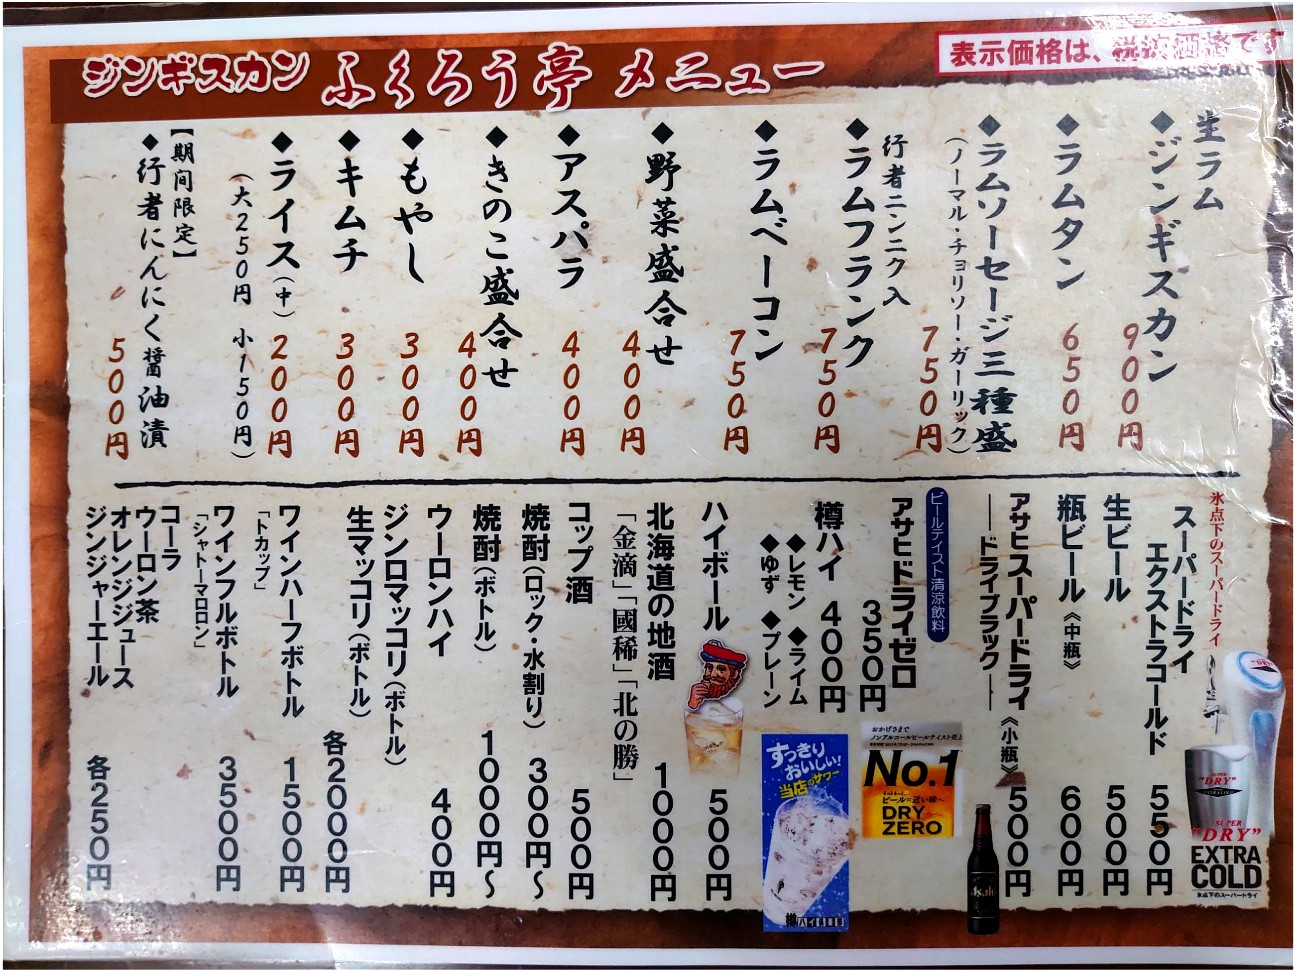 ジンギスカン ふくろう亭 メニュー
表示価格は、税込価格です
生ラム
◆ジンギスカン 900円
◆ラムタン 650円
◆ラムソーセージ三種盛
(ノーマル・チョリソー・ガーリック) 750円
行者ニンニク入
◆ラムフランク 750円
◆ラムベーコン 750円
◆野菜盛合せ 400円
◆アスパラ 400円
◆きのこ盛合せ 400円
◆もやし 300円
◆キムチ 300円
◆ライス(中) 200円
(大250円 小150円)
【期間限定】
◆行者にんにく醤油漬 500円
氷点下のスーパードライ
スーパードライ
エクストラコールド 550円
生ビール 500円
瓶ビール《中瓶》 600円
アサヒスーパードライ
―ドライブラック―《小瓶》 500円
ビールテイスト清涼飲料
アサヒドライゼロ 350円
樽ハイ 400円
◆レモン ◆ライム
◆ゆず ◆プレーン
ハイボール 500円
北海道の地酒 1000円
「金滴」「國稀」「北の勝」
コップ酒 500円
焼酎(ロック・水割り) 300円～
焼酎(ボトル) 1000円～
ウーロンハイ 400円
ジンロマッコリ(ボトル)
生マッコリ(ボトル) 各2000円
ワインハーフボトル 1500円
「トカップ」
ワインフルボトル 3500円
「シャトーマロロン」
コーラ
ウーロン茶
オレンジジュース
ジンジャーエール 各250円
SUPER
"DRY"
SUPER
"DRY"
EXTRA
COLD
氷点下のスーパードライ
おかげさまで
No.1
DRY
ZERO
Asahi
すっきり
おいしい!
当店のサワー